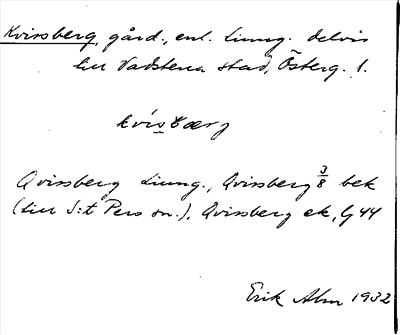 Kvissberg, gård, enl. Ljung. delvis
till Vadstena stad, Österg. l.
kvisbærj
Qvissberg Ljung., Qvissberg 3/8 bek
(till S:t Pers sn.), Qvissberg ek, G 44
Erik Alm 1932